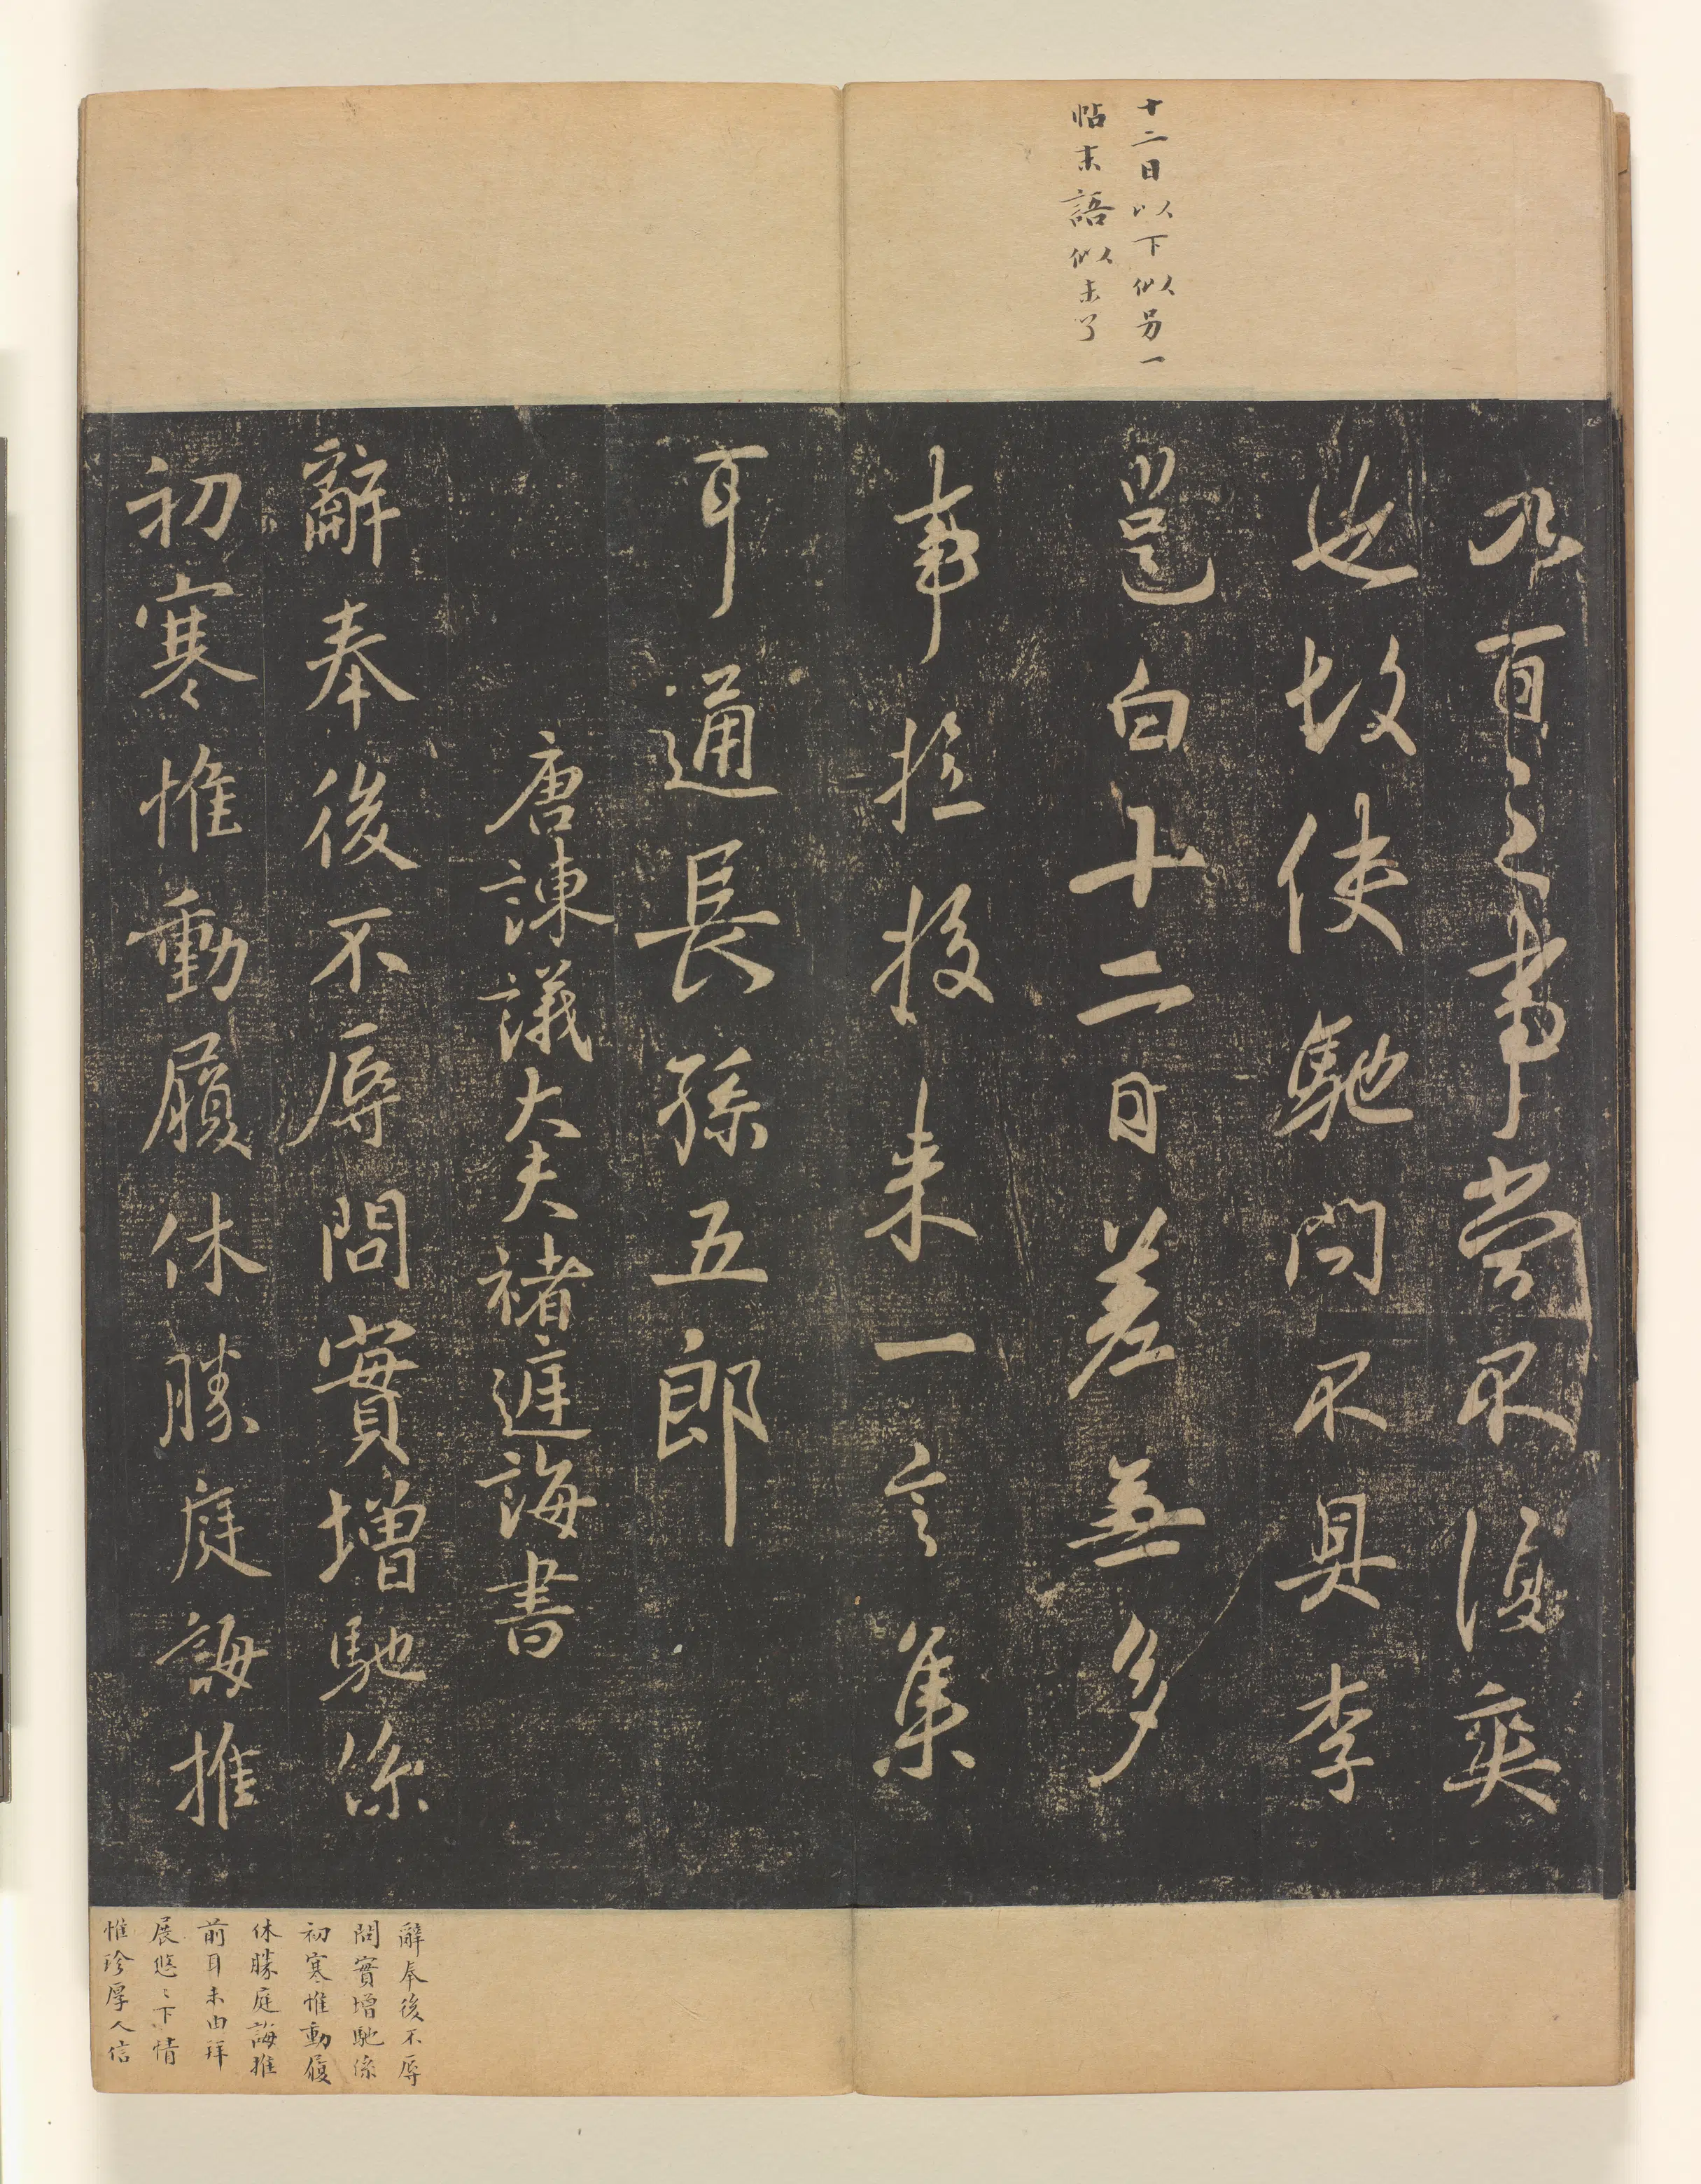 十二日以下似另一
帖末語似未了
百之事當不復奕
也故使馳問不具李
邕白十二日差無多
事拉投来一言集
耳通長孫五郎
唐諫議大夫褚庭誨書
辭奉後不辱問實增馳係
初寒惟動履休勝庭誨推
辭奉後不辱
問實增馳係
初寒惟動履
休勝庭誨推
前耳未由拜
展悠〻下情
惟珍厚人信